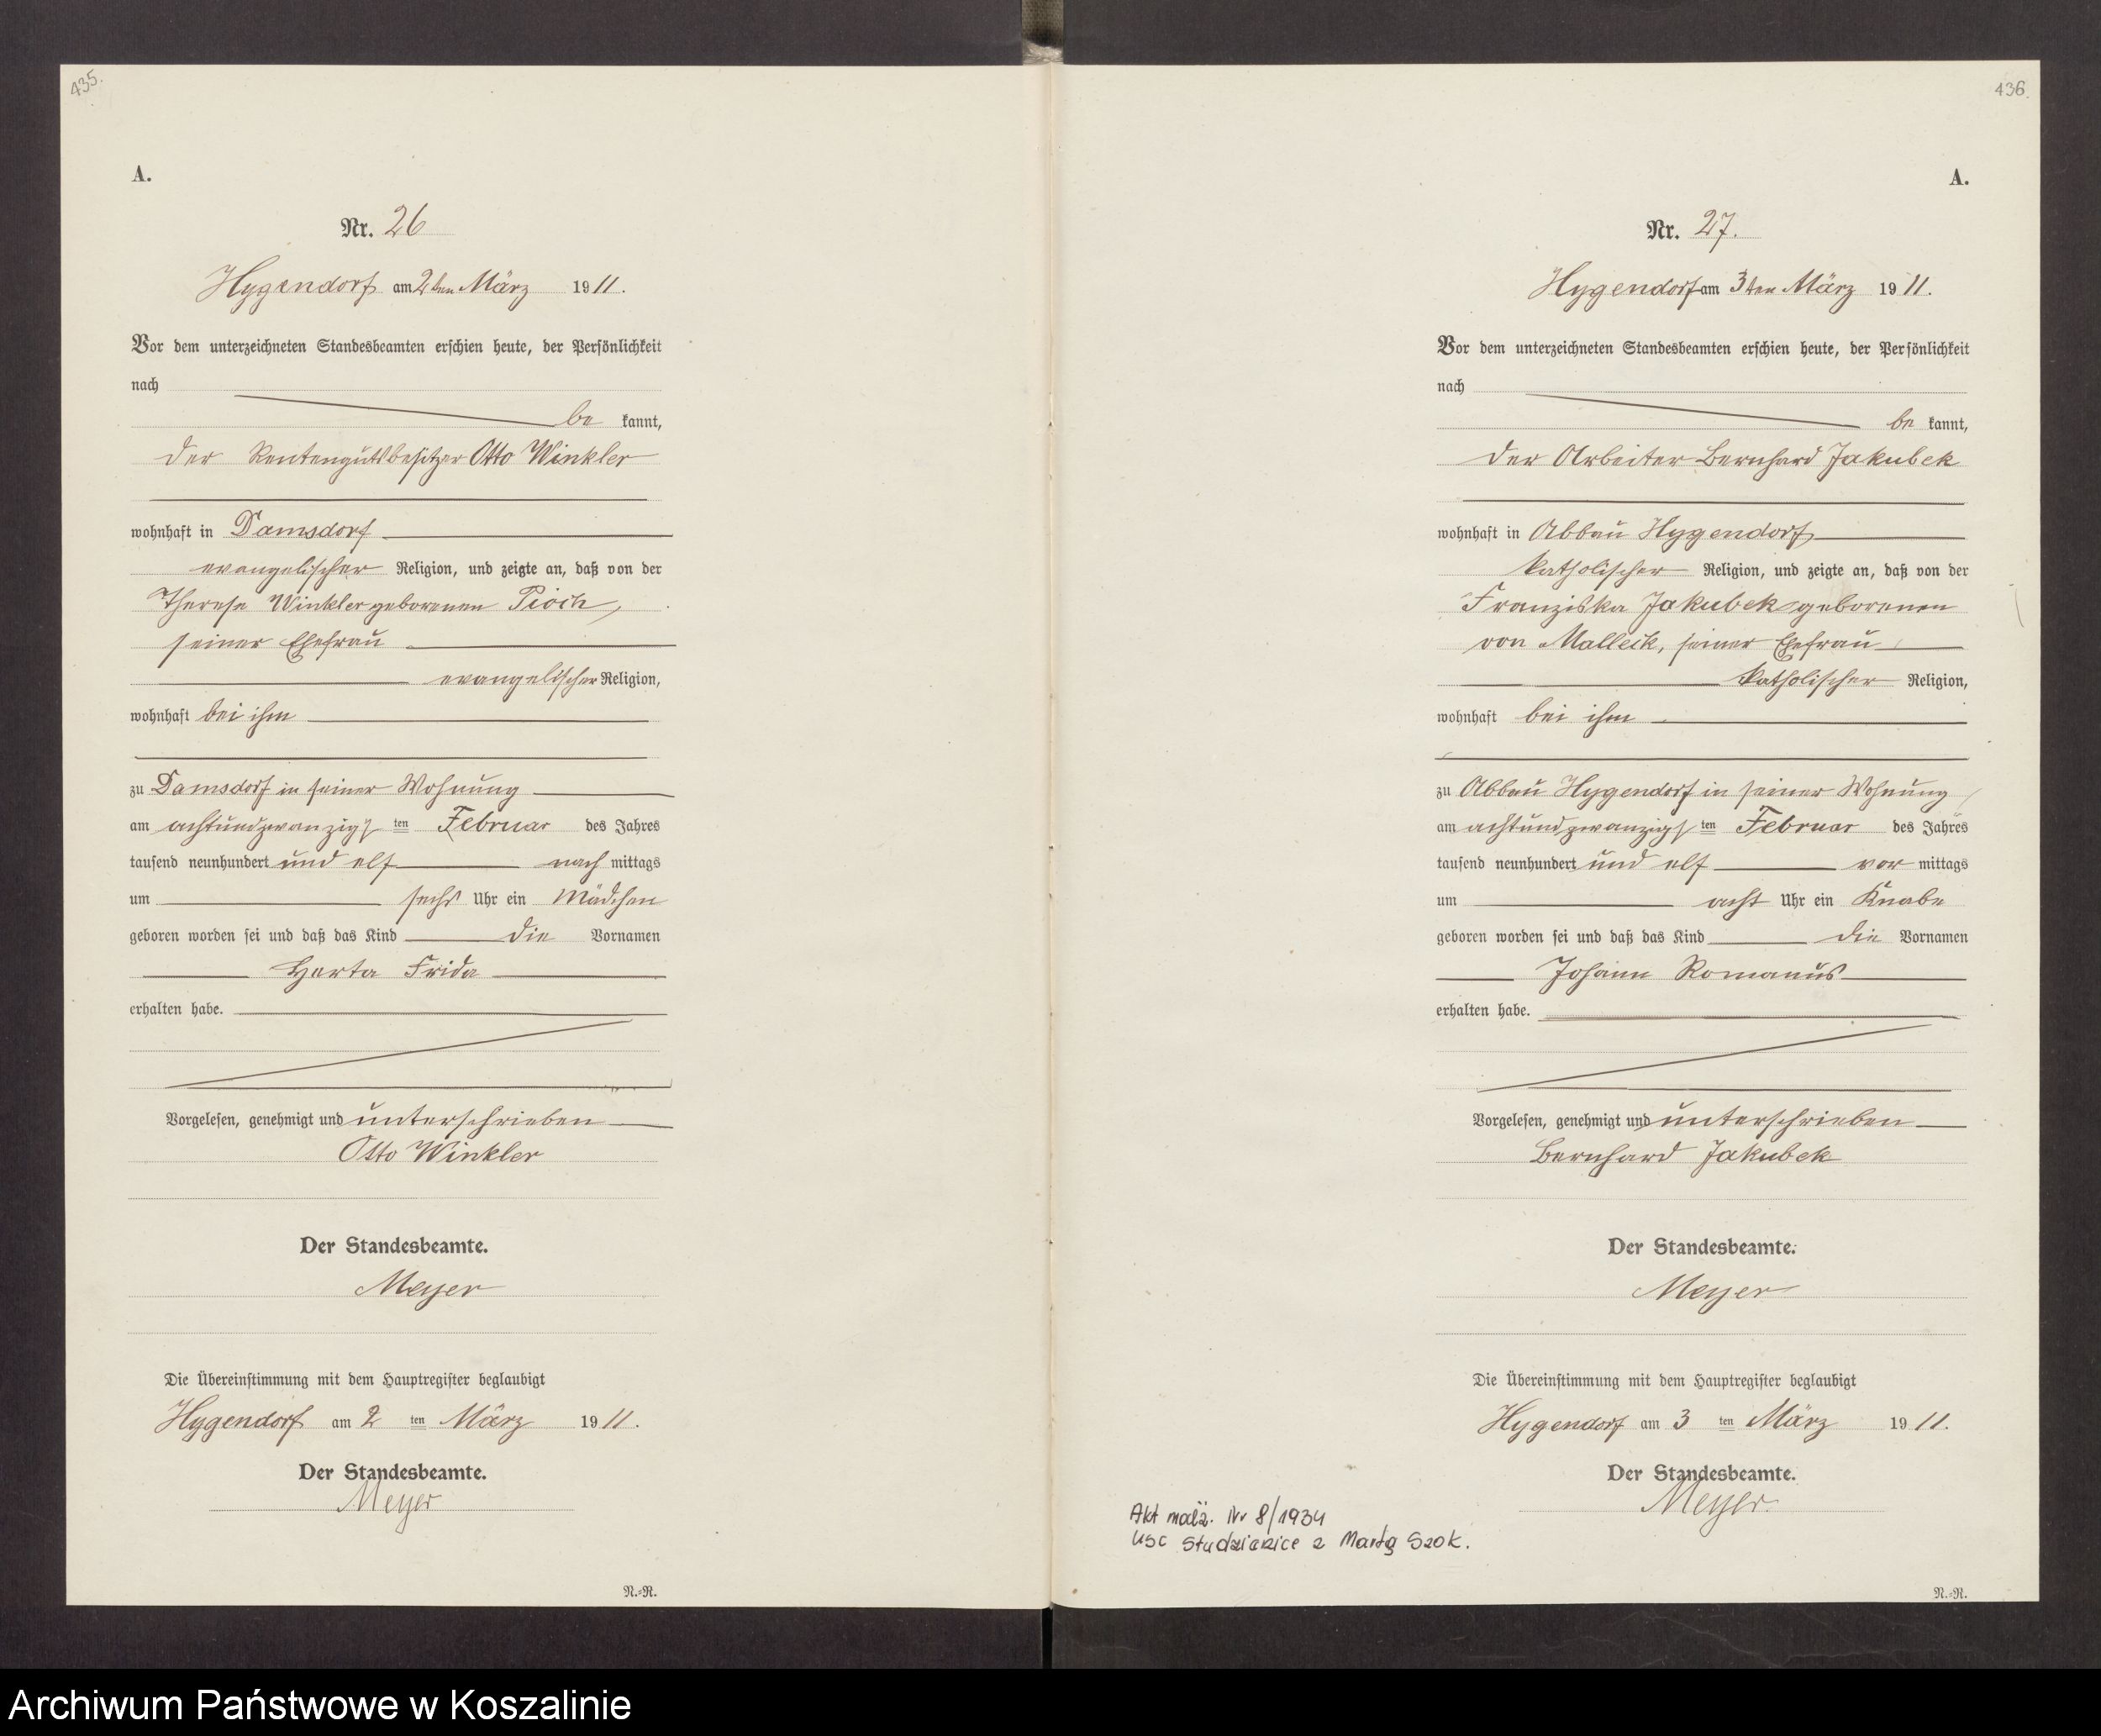 435.
A.
Nr. 26
Hygendorf am 2ten März 1911.
Vor dem unterzeichneten Standesbeamten erschien heute, der Persönlichkeit
nach
be kannt,
der Rentengutsbesitzer Otto Winkler
wohnhaft in Damsdorf
evangelischer Religion, und zeigte an, daß von der
Therese Winkler geborenen Pioch,
seiner Ehefrau
evangelischer Religion,
wohnhaft bei ihm
zu Damsdorf in seiner Wohnung
am achtundzwanzigs ten Februar des Jahres
tausend neunhundert und elf nach mittags
um sechs Uhr ein Mädchen
geboren worden sei und daß das Kind die Vornamen
Herta Frida
erhalten habe.
Vorgelesen, genehmigt und unterschrieben
Otto Winkler
Der Standesbeamte.
Meyer
Die Übereinstimmung mit dem Hauptregister beglaubigt
Hygendorf am 2 ten März 1911.
Der Standesbeamte.
Meyer
N.-R.
436.
A.
Nr. 27.
Hygendorf am 3ten März 1911.
Vor dem unterzeichneten Standesbeamten erschien heute, der Persönlichkeit
nach
be kannt,
der Arbeiter Bernhard Jakubek
wohnhaft in Abbau Hygendorf
katholischer Religion, und zeigte an, daß von der
Franziska Jakubek geborenen
von Malleck, seiner Ehefrau
katholischer Religion,
wohnhaft bei ihm
zu Abbau Hygendorf in seiner Wohnung
am achtundzwanzigs ten Februar des Jahres
tausend neunhundert und elf vor mittags
um acht Uhr ein Knabe
geboren worden sei und daß das Kind die Vornamen
Johann Romanus
erhalten habe.
Vorgelesen, genehmigt und unterschrieben
Bernhard Jakubek
Der Standesbeamte.
Meyer
Die Übereinstimmung mit dem Hauptregister beglaubigt
Hygendorf am 3 ten März 1911.
Der Standesbeamte.
Meyer.
Akt małż. Nr 8/1934
USC Studzienice z Martą Szok.
N.-R.
Archiwum Państwowe w Koszalinie